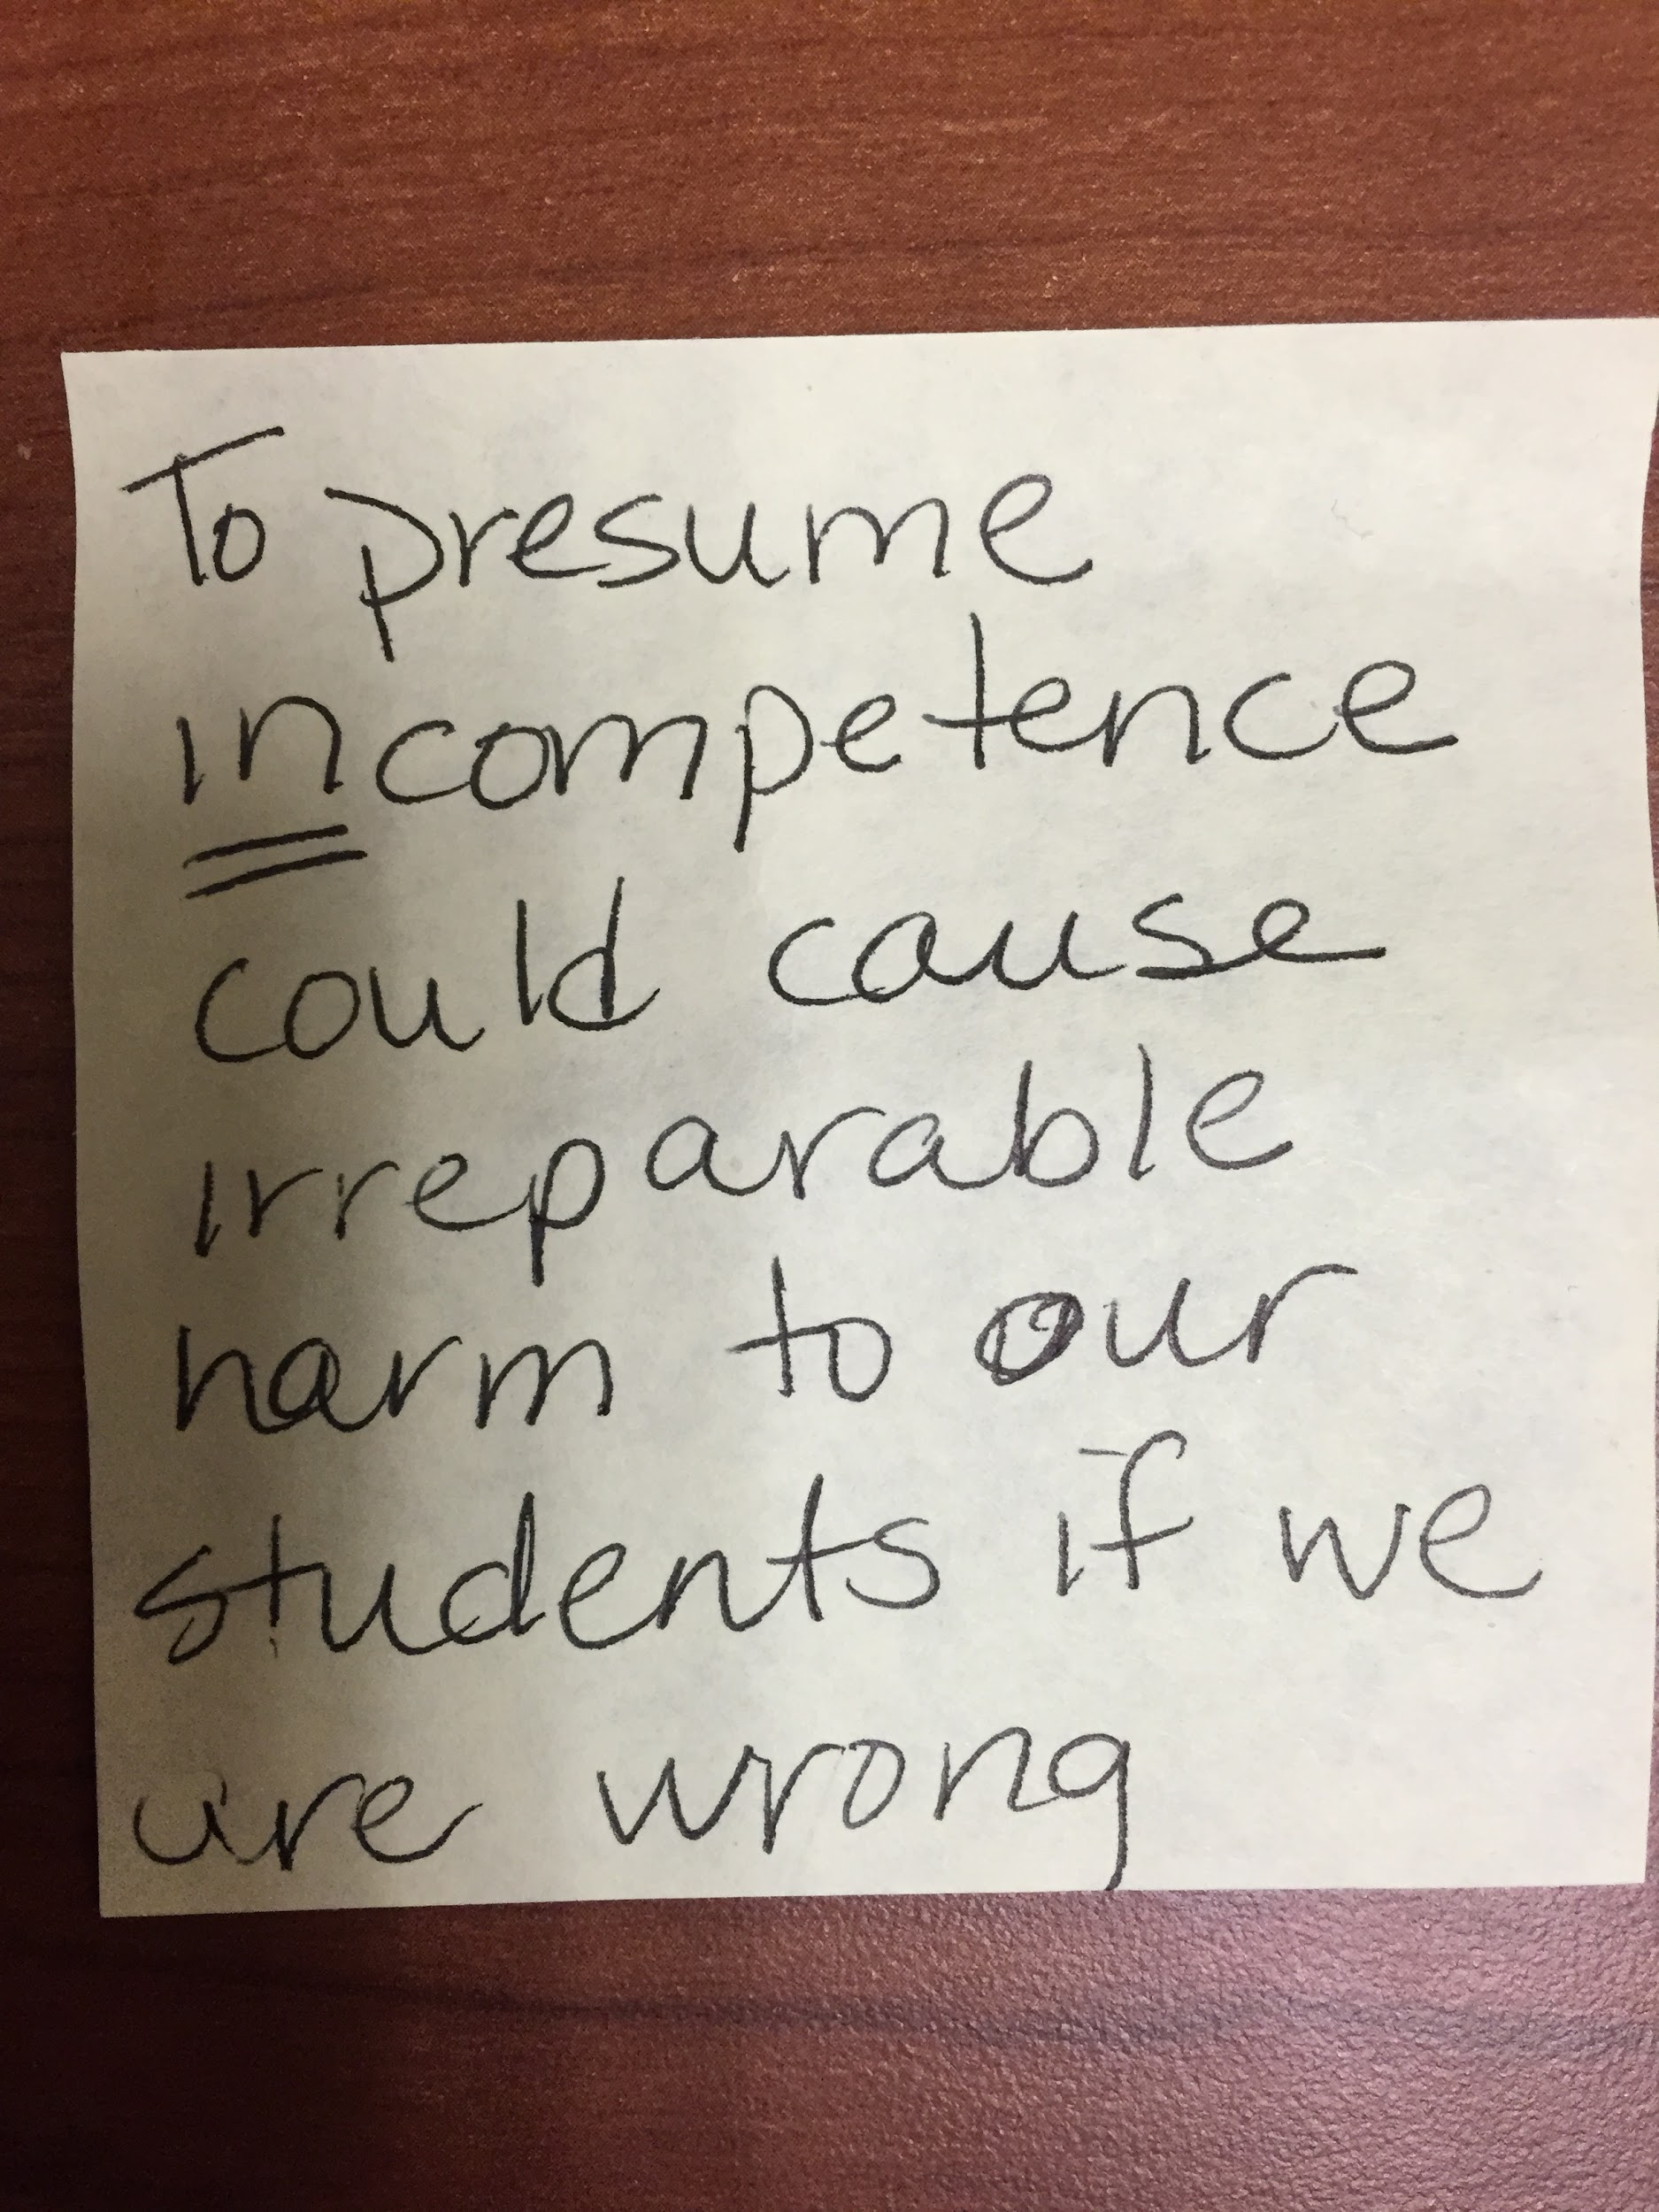 To presume
incompetence
could cause
irreparable
harm to our
students if we
are wrong